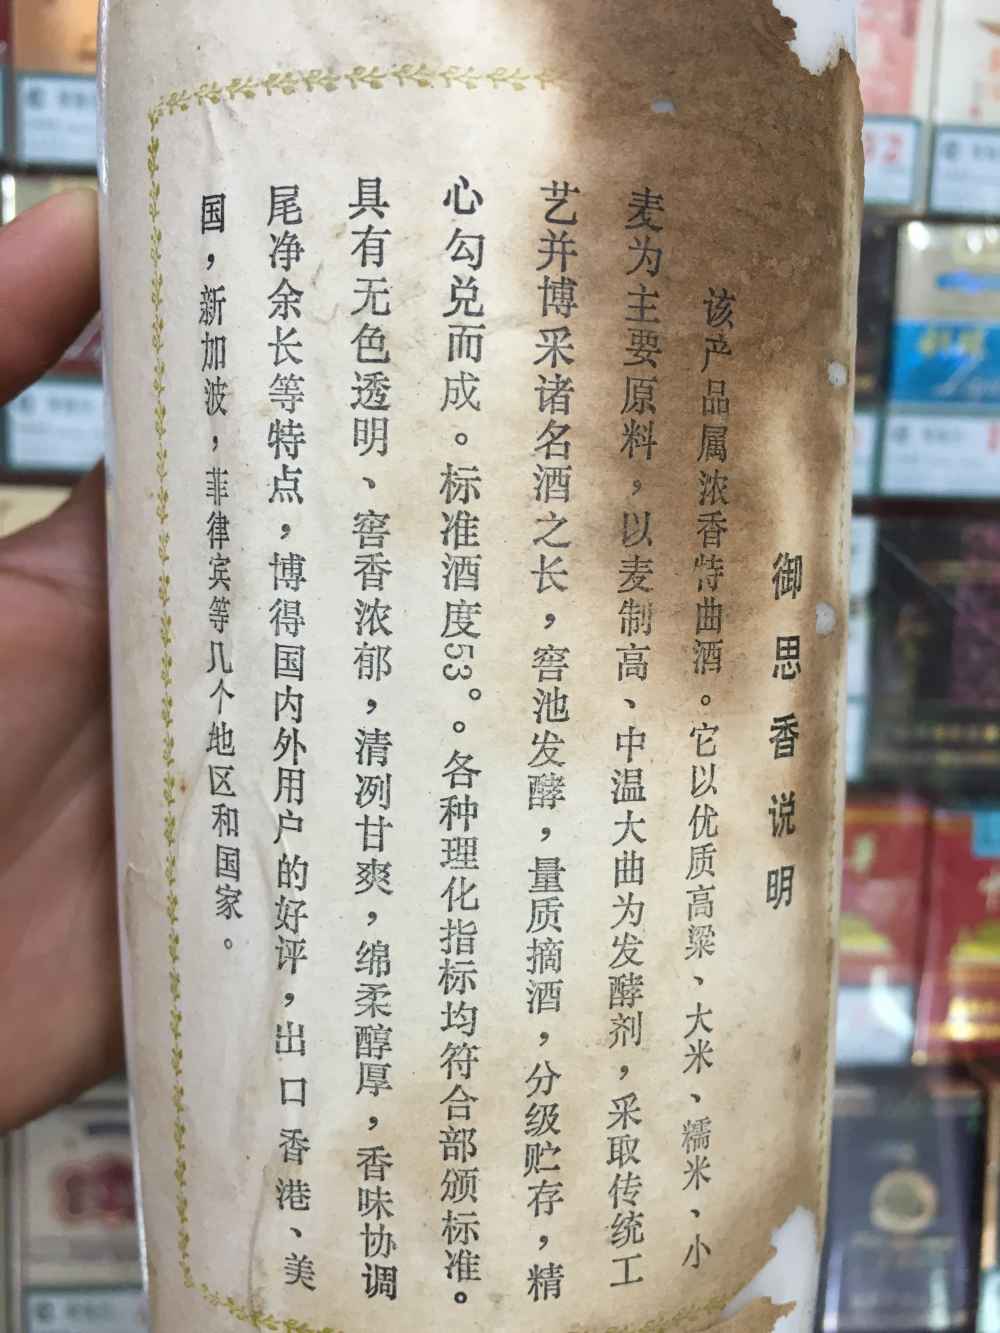 御思香说明
该产品属浓香特曲酒。它以优质高粱、大米、糯米、小
麦为主要原料，以麦制高、中温大曲为发酵剂，采取传统工
艺并博采诸名酒之长，窖池发酵，量质摘酒，分级贮存，精
心勾兑而成。标准酒度53°。各种理化指标均符合部颁标准。
具有无色透明、窖香浓郁，清冽甘爽，绵柔醇厚，香味协调
尾净余长等特点，博得国内外用户的好评，出口香港、美
国，新加波，菲律宾等几个地区和国家。